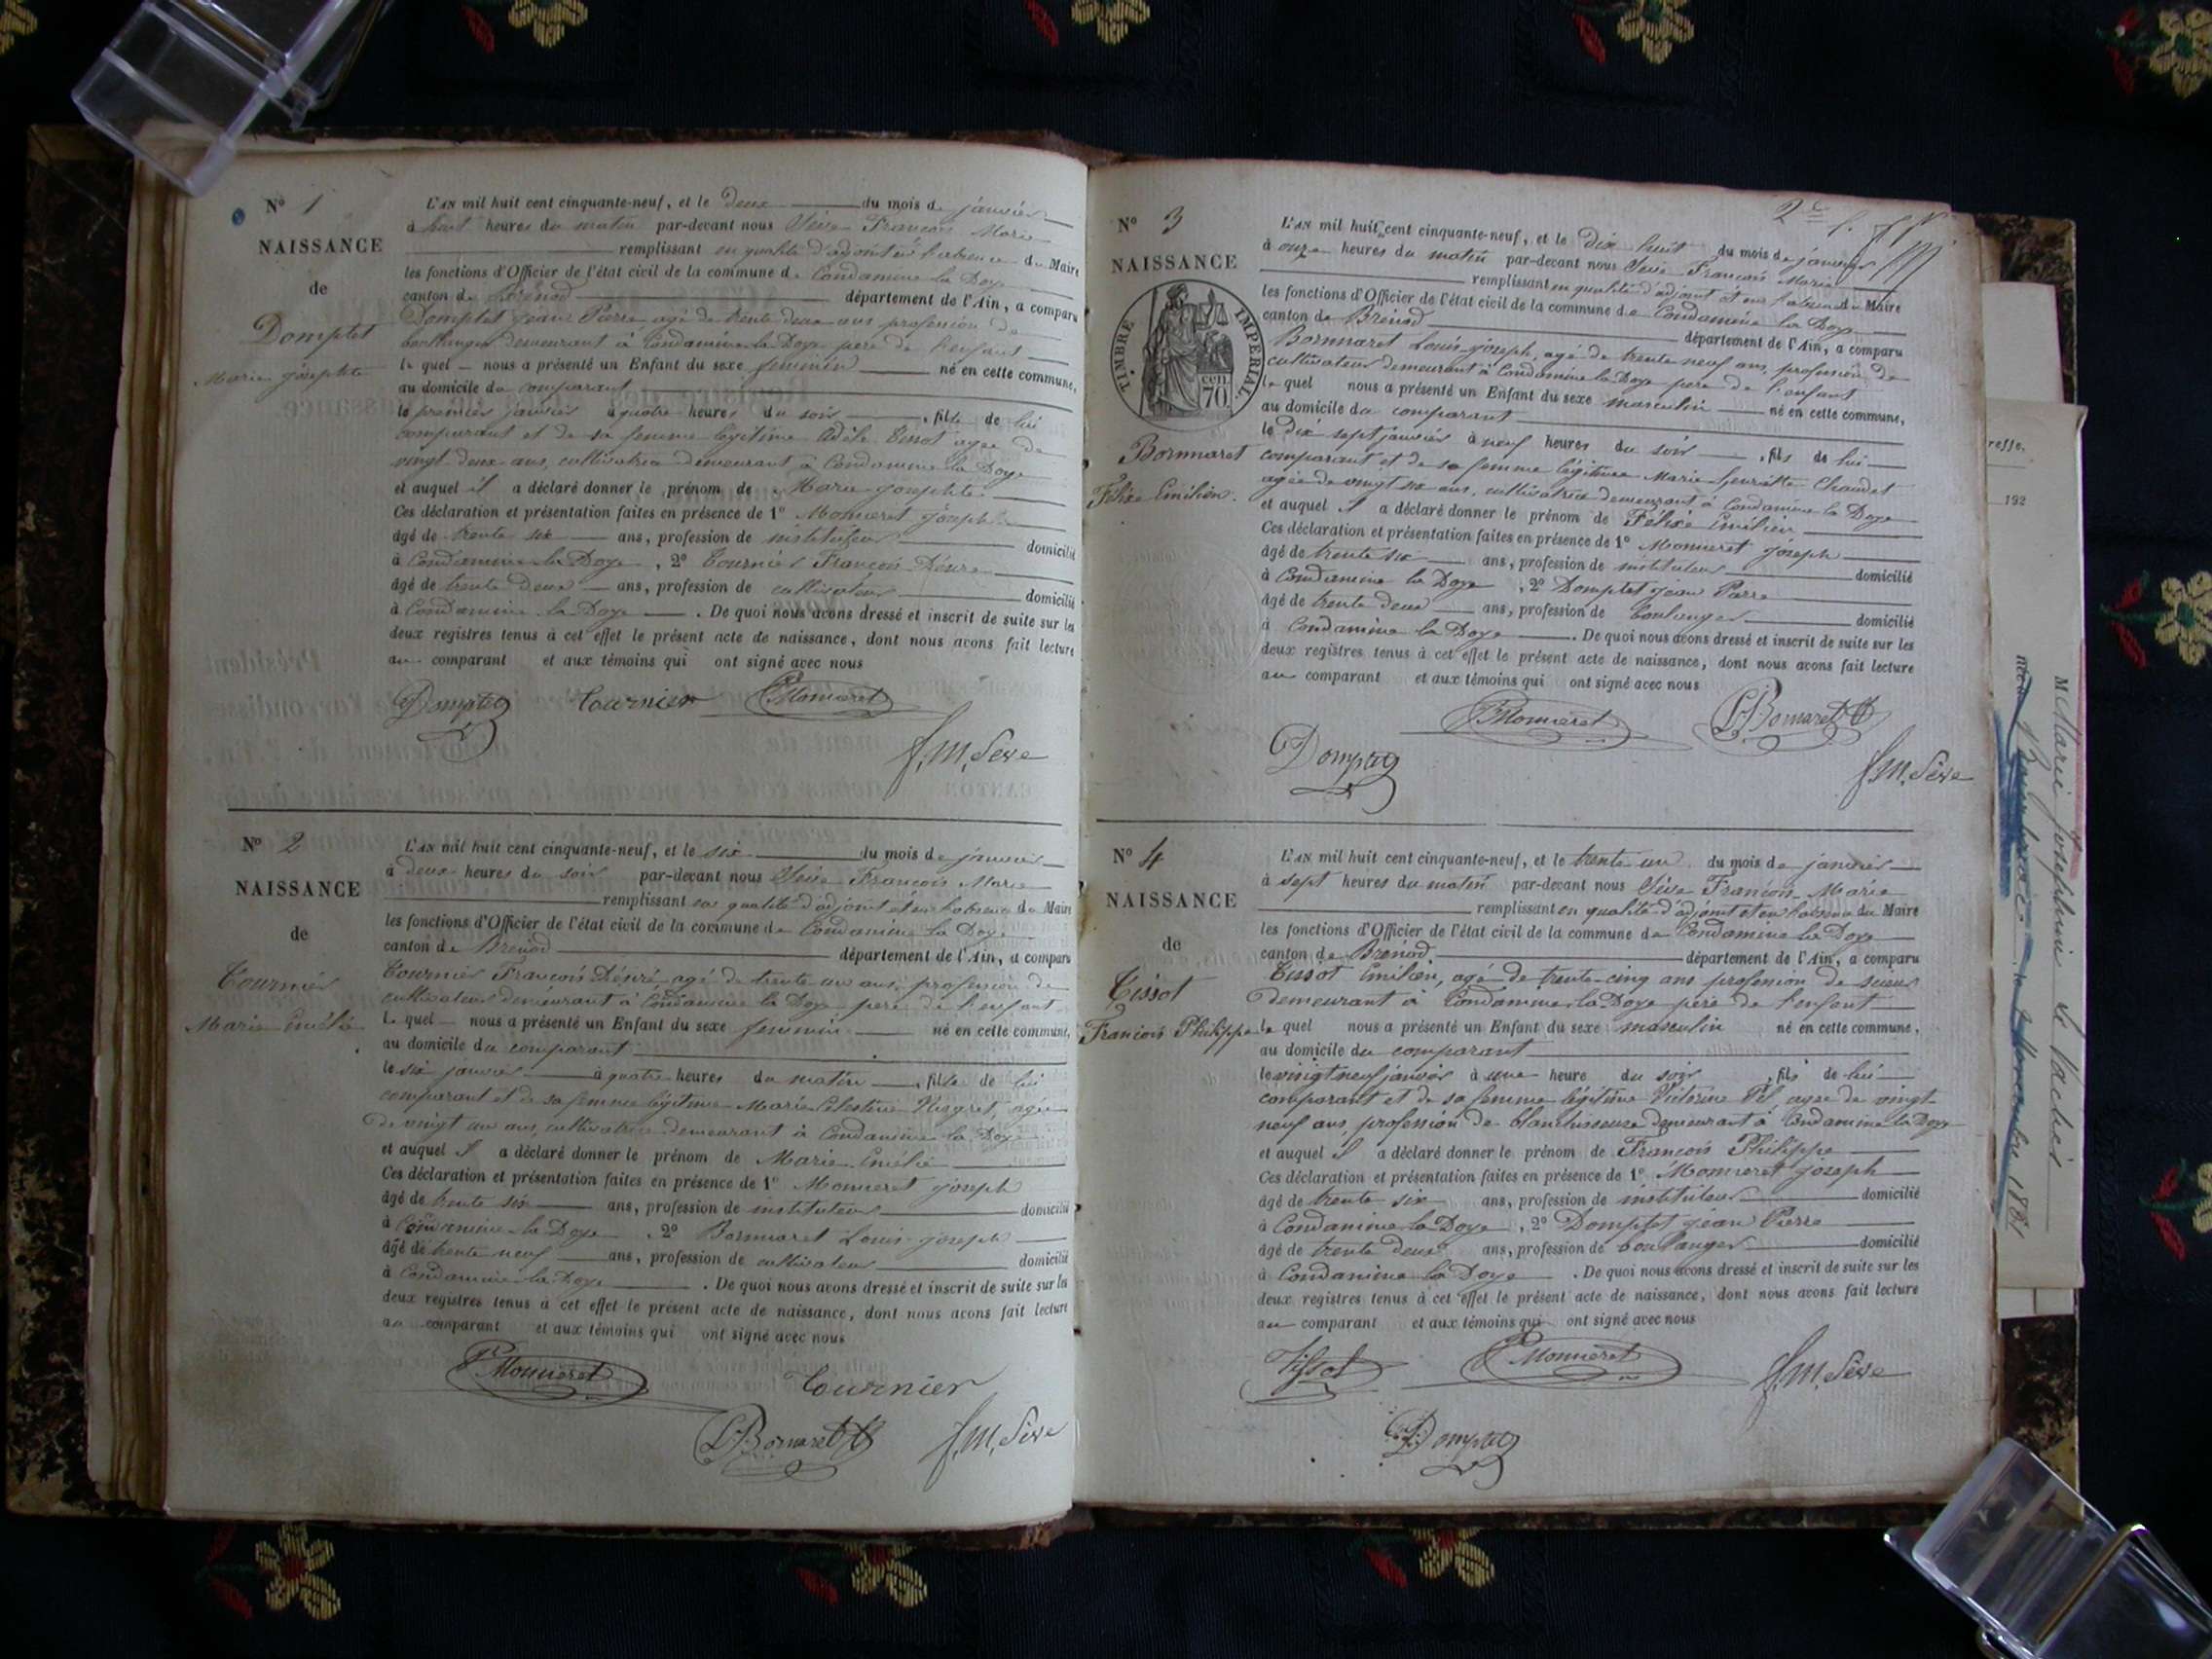 N° 1
NAISSANCE
de
Domptet
Marie josephte
L'AN mil huit cent cinquante-neuf, et le deux du mois de janvier
à huit heures du matin par-devant nous Sève François Marie
remplissant en qualité d'adjoint et en l'absence du Maire
les fonctions d'Officier de l'état civil de la commune de Condamine la Doye
canton de Brénod département de l'Ain, a comparu
Domptet jean Pierre agé de trente deux ans profession de
boulanger demeurant à Condamine la Doye père de l'enfant
le quel nous a présenté un Enfant du sexe féminin né en cette commune,
au domicile du comparant
le premier janvier à quatre heures du soir , fille de lui
comparant et de sa femme légitime Adèle Tissot agée de
vingt deux ans, cultivatrice demeurant à Condamine la Doye
et auquel il a déclaré donner le prénom de Marie josephte
Ces déclaration et présentation faites en présence de 1° Monneret joseph
âgé de trente six ans, profession de instituteur domicilié
à Condamine la Doye , 2° Tournier François Désiré
âgé de trente deux ans, profession de cultivateur domicilié
à Condamine la Doye . De quoi nous avons dressé et inscrit de suite sur les
deux registres tenus à cet effet le présent acte de naissance, dont nous avons fait lecture
au comparant et aux témoins qui ont signé avec nous
Domptet Tournier Monneret
f. M. Sève
N° 2
NAISSANCE
de
Tournier
Marie Emélie
L'AN mil huit cent cinquante-neuf, et le six du mois de janvier
à deux heures du soir par-devant nous Sève François Marie
remplissant en qualité d'adjoint et en l'absence du Maire
les fonctions d'Officier de l'état civil de la commune de Condamine la Doye
canton de Brénod département de l'Ain, a comparu
Tournier François Désiré, agé de trente un ans, profession de
cultivateur demeurant à Condamine la Doye père de l'enfant
le quel nous a présenté un Enfant du sexe féminin né en cette commune,
au domicile du comparant
le six janvier à quatre heures du matin , fille de lui
comparant et de sa femme légitime Marie Célestine agée
de vingt un ans, cultivatrice demeurant à Condamine la Doye
et auquel il a déclaré donner le prénom de Marie Emélie
Ces déclaration et présentation faites en présence de 1° Monneret joseph
âgé de trente six ans, profession de instituteur domicilié
à Condamine la Doye , 2° Bornmaret Louis joseph
âgé de trente neuf ans, profession de cultivateur domicilié
à Condamine la Doye . De quoi nous avons dressé et inscrit de suite sur les
deux registres tenus à cet effet le présent acte de naissance, dont nous avons fait lecture
au comparant et aux témoins qui ont signé avec nous
Monneret Tournier
L. Bornaret f. M. Sève
2e f.
N° 3
NAISSANCE
TIMBRE IMPERIAL
70 cen.
Bornmaret
Félixe Emilien.
L'AN mil huit cent cinquante-neuf, et le dix huit du mois de janvier
à onze heures du matin par-devant nous Sève François Marie
remplissant en qualité d'adjoint et en l'absence du Maire
les fonctions d'Officier de l'état civil de la commune de Condamine la Doye
canton de Brénod département de l'Ain, a comparu
Bornmaret Louis joseph, agé de trente neuf ans, profession de
cultivateur demeurant à Condamine la Doye père de l'enfant
le quel nous a présenté un Enfant du sexe masculin né en cette commune,
au domicile du comparant
le dix sept janvier à neuf heures du soir , fils de lui
comparant et de sa femme légitime Marie Henriette Chaudet
agée de vingt six ans, cultivatrice demeurant à Condamine la Doye
et auquel il a déclaré donner le prénom de Félixe Emilien
Ces déclaration et présentation faites en présence de 1° Monneret joseph
âgé de trente six ans, profession de instituteur domicilié
à Condamine la Doye , 2° Domptet jean Pierre
âgé de trente deux ans, profession de boulanger domicilié
à Condamine la Doye . De quoi nous avons dressé et inscrit de suite sur les
deux registres tenus à cet effet le présent acte de naissance, dont nous avons fait lecture
au comparant et aux témoins qui ont signé avec nous
Monneret L. Bornaret
Domptet f. M. Sève
N° 4
NAISSANCE
de
Tissot
François Philippe
L'AN mil huit cent cinquante-neuf, et le trente un du mois de janvier
à sept heures du matin par-devant nous Sève François Marie
remplissant en qualité d'adjoint et en l'absence du Maire
les fonctions d'Officier de l'état civil de la commune de Condamine la Doye
canton de Brénod département de l'Ain, a comparu
Tissot Emilien, agé de trente-cinq ans profession de scieur
demeurant à Condamine la Doye père de l'enfant
le quel nous a présenté un Enfant du sexe masculin né en cette commune,
au domicile du comparant
le vingt neuf janvier à une heure du soir , fils de lui
comparant et de sa femme légitime Victorine agée de vingt
neuf ans, profession de blanchisseuse demeurant à Condamine la Doye
et auquel il a déclaré donner le prénom de François Philippe
Ces déclaration et présentation faites en présence de 1° Monneret joseph
âgé de trente six ans, profession de instituteur domicilié
à Condamine la Doye , 2° Domptet jean Pierre
âgé de trente deux ans, profession de boulanger domicilié
à Condamine la Doye . De quoi nous avons dressé et inscrit de suite sur les
deux registres tenus à cet effet le présent acte de naissance, dont nous avons fait lecture
au comparant et aux témoins qui ont signé avec nous
Tissot Monneret f. M. Sève
Domptet
resse.
192
M Marie Joséphine
le 2 Novembre 1881